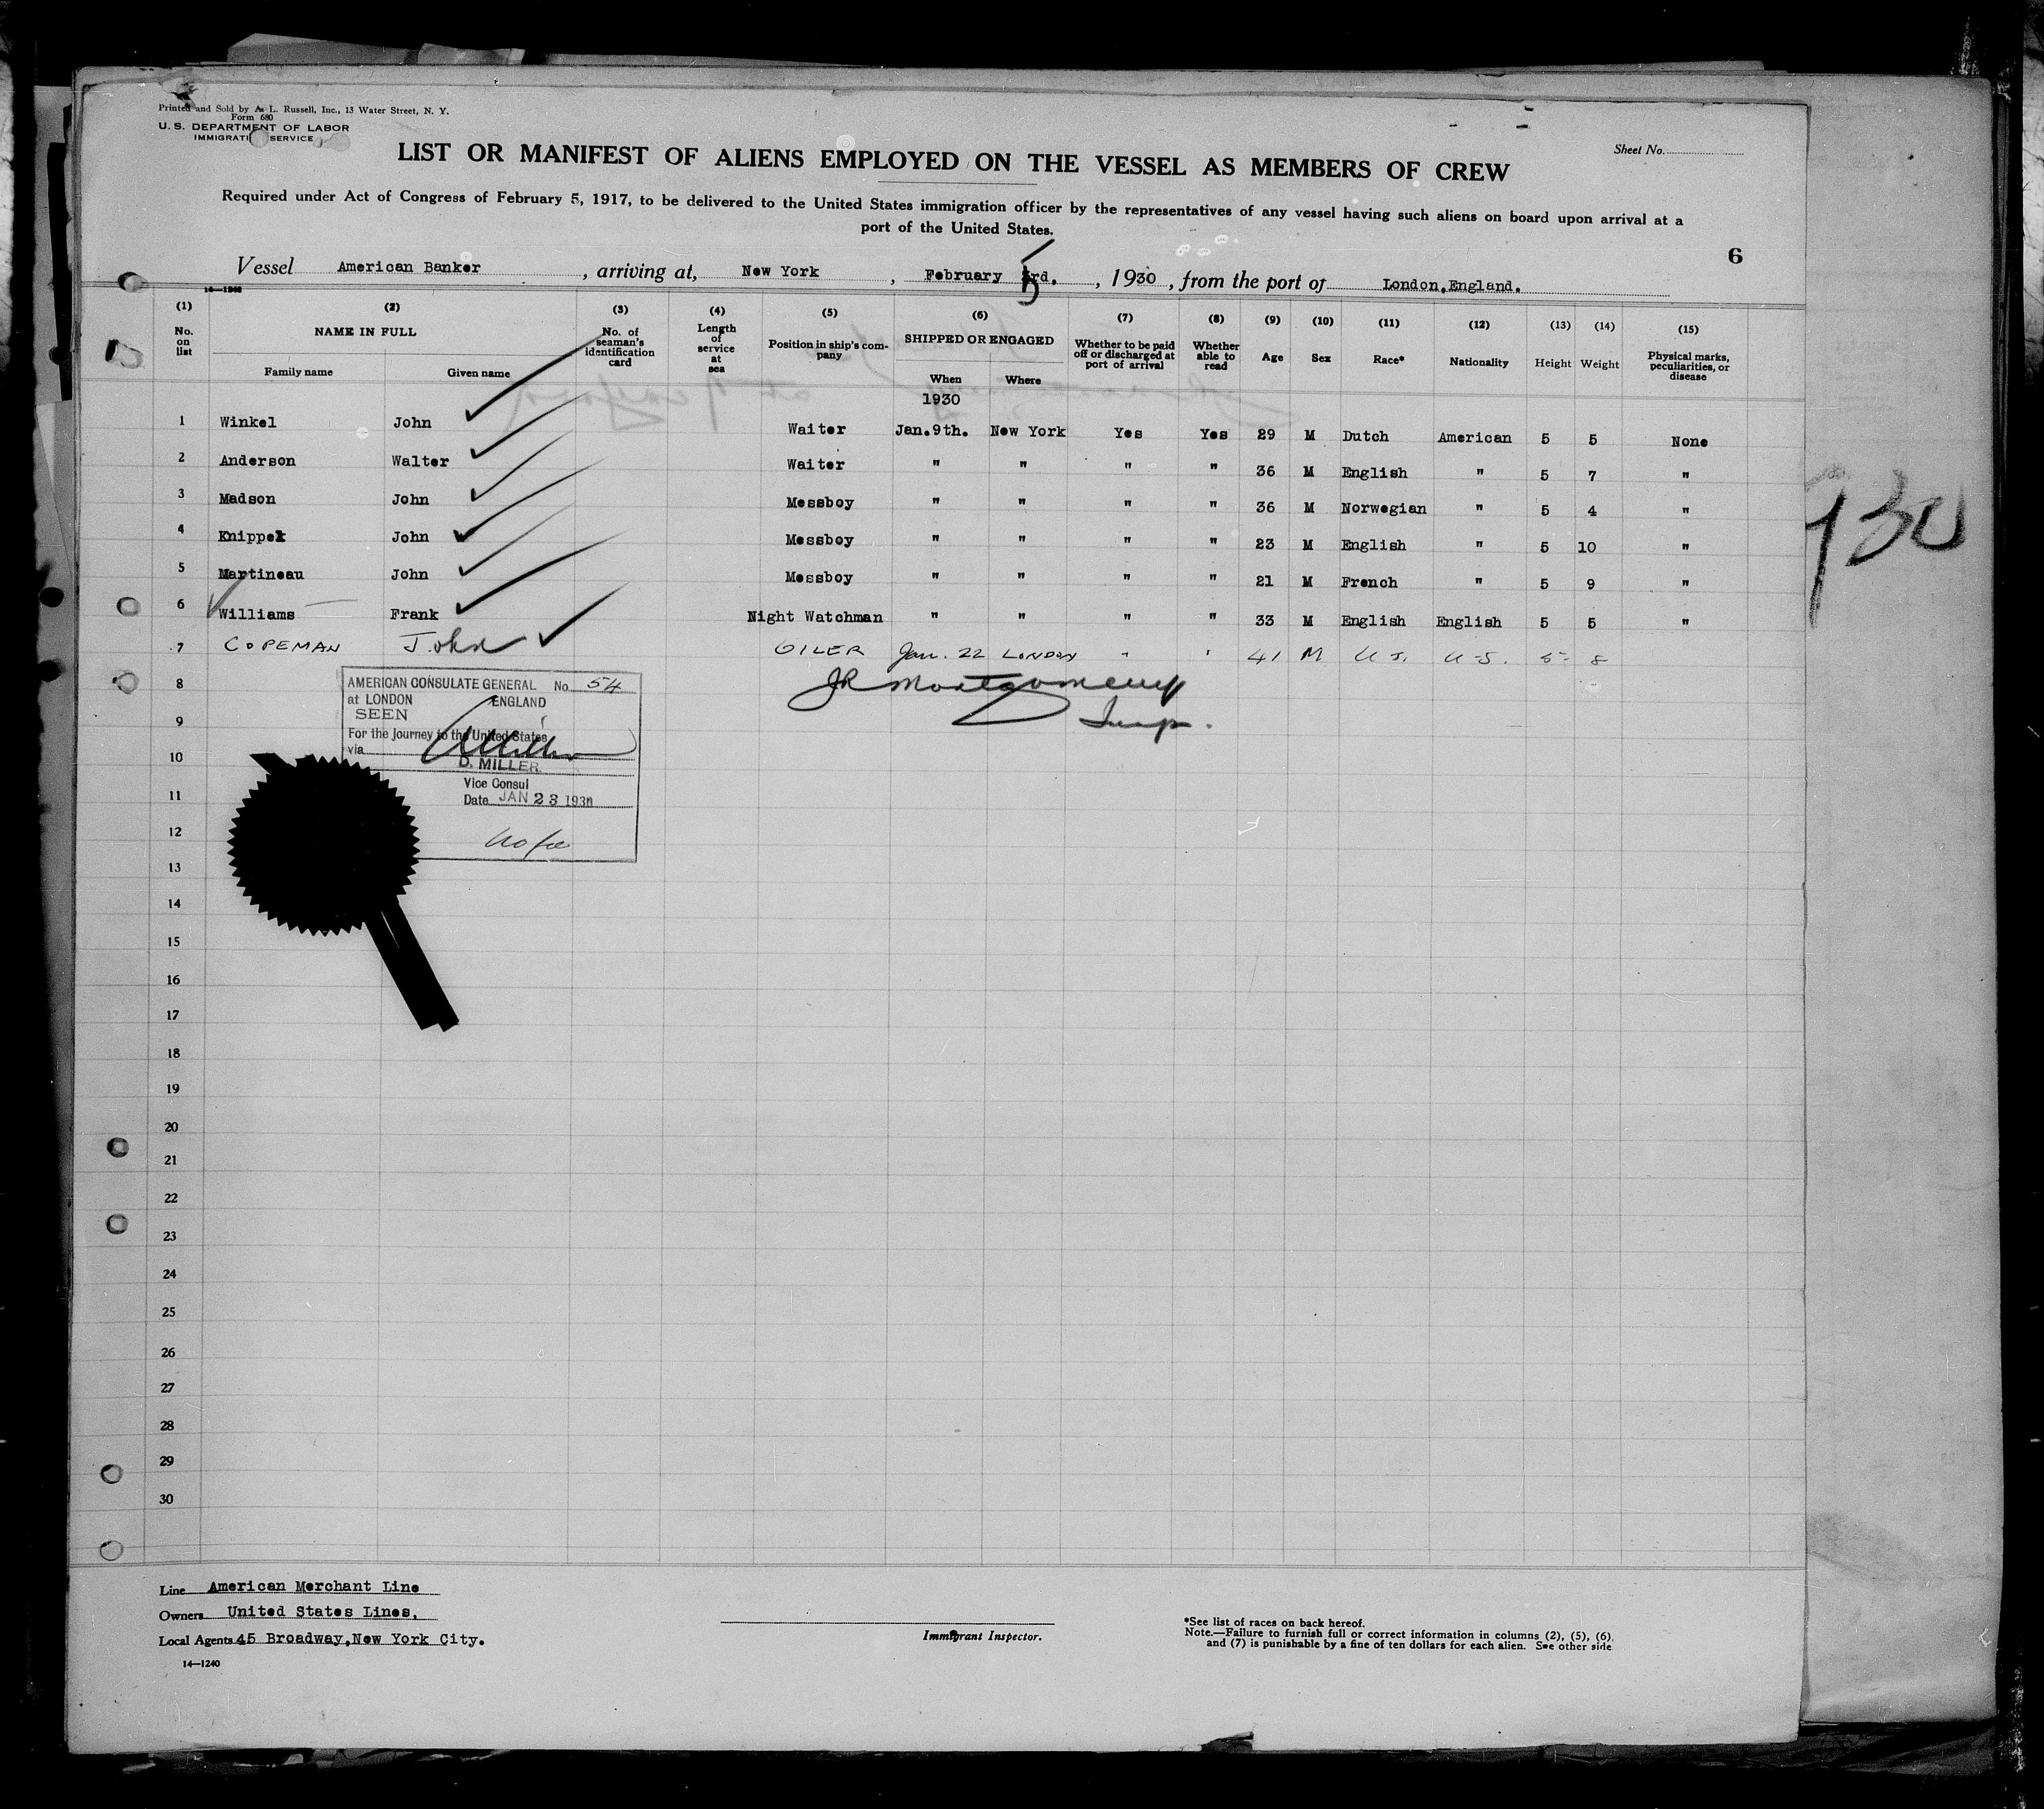 Printed and Sold by A. L. Russell, Inc., 13 Water Street, N. Y.
Form 680
U. S. DEPARTMENT OF LABOR
IMMIGRATI SERVICE
Sheet No.
LIST OR MANIFEST OF ALIENS EMPLOYED ON THE VESSEL AS MEMBERS OF CREW
Required under Act of Congress of February 5, 1917, to be delivered to the United States immigration officer by the representatives of any vessel having such aliens on board upon arrival at a
port of the United States.
6
Vessel American Banker, arriving at, New York, February 5 3rd., 1930, from the port of London, England.
14—1240
(1) (2) (3) (4) (5) (6) (7) (8) (9) (10) (11) (12) (13) (14) (15)
No. on list NAME IN FULL Family name Given name No. of seaman's identification card Length of service at sea Position in ship's company SHIPPED OR ENGAGED When Where Whether to be paid off or discharged at port of arrival Whether able to read Age Sex Race* Nationality Height Weight Physical marks, peculiarities, or disease
1930
1 Winkel John Waiter Jan.9th. New York Yes Yes 29 M Dutch American 5 5 None
2 Anderson Walter Waiter " " " " 36 M English " 5 7 "
3 Madson John Messboy " " " " 36 M Norwegian " 5 4 "
4 Knippel John Messboy " " " " 23 M English " 5 10 "
5 Martineau John Messboy " " " " 21 M French " 5 9 "
6 Williams Frank Night Watchman " " " " 33 M English English 5 5 "
7 COPEMAN John OILER Jan. 22 LONDON " " 41 M U S. U-S. 5- 8
8
9
10
11
12
13
14
15
16
17
18
19
20
21
22
23
24
25
26
27
28
29
30
JR Montgomery
Insp.
AMERICAN CONSULATE GENERAL No. 54
at LONDON ENGLAND
SEEN
For the Journey to the United States
via
D. MILLER
Vice Consul
Date JAN 23 1930
No fee
930
Line American Merchant Line
Owners United States Lines,
Local Agents 45 Broadway, New York City.
14—1240
Immigrant Inspector.
*See list of races on back hereof.
Note.—Failure to furnish full or correct information in columns (2), (5), (6),
and (7) is punishable by a fine of ten dollars for each alien. See other side